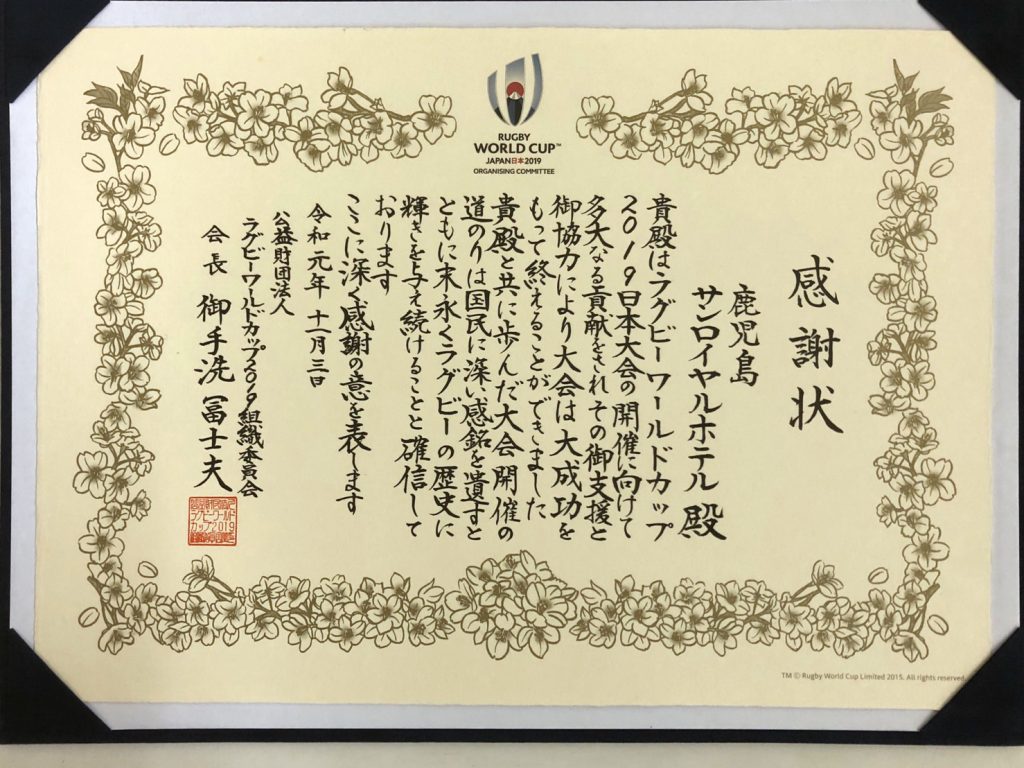 RUGBY
WORLD CUP™
JAPAN日本2019
ORGANISING COMMITTEE
感謝状
鹿児島
サンロイヤルホテル 殿
貴殿はラグビーワールドカップ
2019日本大会の開催に向けて
多大なる貢献をされその御支援と
御協力により大会は大成功を
もって終えることができました
貴殿と共に歩んだ大会開催の
道のりは国民に深い感銘を遺すと
ともに末永くラグビーの歴史に
輝きを与え続けることと確信して
おります
ここに深く感謝の意を表します
令和元年十一月三日
公益財団法人
ラグビーワールドカップ2019組織委員会
会長 御手洗冨士夫
ラグビーワールド
カップ2019
TM © Rugby World Cup Limited 2015. All rights reserved.